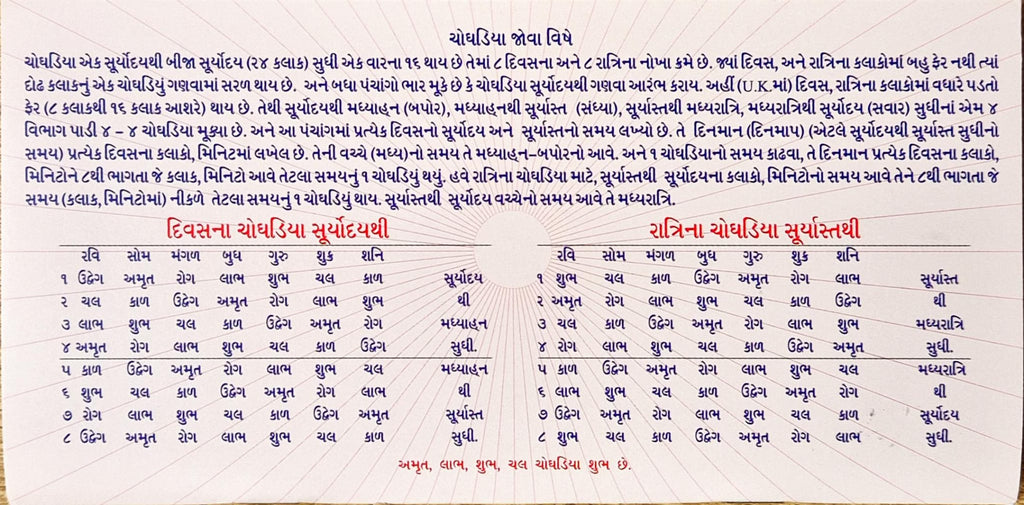 ચોઘડિયા જોવા વિષે
ચોઘડિયા એક સૂર્યોદયથી બીજા સૂર્યોદય (૨૪ કલાક) સુધી એક વારના ૧૬ થાય છે તેમાં ૮ દિવસના અને ૮ રાત્રિના નોખા ક્રમે છે. જ્યાં દિવસ, અને રાત્રિના કલાકોમાં બહુ ફેર નથી ત્યાં
દોઢ કલાકનું એક ચોઘડિયું ગણવામાં સરળ થાય છે. અને બધા પંચાંગો ભાર મૂકે છે કે ચોઘડિયા સૂર્યોદયથી ગણવા આરંભ કરાય. અહીં (U.K.માં) દિવસ, રાત્રિના કલાકોમાં વધારે પડતો
ફેર (૮ કલાકથી ૧૬ કલાક આશરે) થાય છે. તેથી સૂર્યોદયથી મધ્યાહ્ન (બપોર), મધ્યાહ્નથી સૂર્યાસ્ત (સંધ્યા), સૂર્યાસ્તથી મધ્યરાત્રિ, મધ્યરાત્રિથી સૂર્યોદય (સવાર) સુધીનાં એમ ૪
વિભાગ પાડી ૪ – ૪ ચોઘડિયા મૂક્યા છે. અને આ પંચાંગમાં પ્રત્યેક દિવસનો સૂર્યોદય અને સૂર્યાસ્તનો સમય લખ્યો છે. તે દિનમાન (દિનમાપ) (એટલે સૂર્યોદયથી સૂર્યાસ્ત સુધીનો
સમય) પ્રત્યેક દિવસના કલાકો, મિનિટમાં લખેલ છે. તેની વચ્ચે (મધ્ય)નો સમય તે મધ્યાહ્ન–બપોરનો આવે. અને ૧ ચોઘડિયાનો સમય કાઢવા, તે દિનમાન પ્રત્યેક દિવસના કલાકો,
મિનિટોને ૮થી ભાગતા જે કલાક, મિનિટો આવે તેટલા સમયનું ૧ ચોઘડિયું થયું. હવે રાત્રિના ચોઘડિયા માટે, સૂર્યાસ્તથી સૂર્યોદયના કલાકો, મિનિટોનો સમય આવે તેને ૮થી ભાગતા જે
સમય (કલાક, મિનિટોમાં) નીકળે તેટલા સમયનું ૧ ચોઘડિયું થાય. સૂર્યાસ્તથી સૂર્યોદય વચ્ચેનો સમય આવે તે મધ્યરાત્રિ.
દિવસના ચોઘડિયા સૂર્યોદયથી
રવિ સોમ મંગળ બુધ ગુરુ શુક્ર શનિ
૧ ઉદ્વેગ અમૃત રોગ લાભ શુભ ચલ કાળ સૂર્યોદય
૨ ચલ કાળ ઉદ્વેગ અમૃત રોગ લાભ શુભ થી
૩ લાભ શુભ ચલ કાળ ઉદ્વેગ અમૃત રોગ મધ્યાહ્ન
૪ અમૃત રોગ લાભ શુભ ચલ કાળ ઉદ્વેગ સુધી.
૫ કાળ ઉદ્વેગ અમૃત રોગ લાભ શુભ ચલ મધ્યાહ્ન
૬ શુભ ચલ કાળ ઉદ્વેગ અમૃત રોગ લાભ થી
૭ રોગ લાભ શુભ ચલ કાળ ઉદ્વેગ અમૃત સૂર્યાસ્ત
૮ ઉદ્વેગ અમૃત રોગ લાભ શુભ ચલ કાળ સુધી.
રાત્રિના ચોઘડિયા સૂર્યાસ્તથી
રવિ સોમ મંગળ બુધ ગુરુ શુક્ર શનિ
૧ શુભ ચલ કાળ ઉદ્વેગ અમૃત રોગ લાભ સૂર્યાસ્ત
૨ અમૃત રોગ લાભ શુભ ચલ કાળ ઉદ્વેગ થી
૩ ચલ કાળ ઉદ્વેગ અમૃત રોગ લાભ શુભ મધ્યરાત્રિ
૪ રોગ લાભ શુભ ચલ કાળ ઉદ્વેગ અમૃત સુધી.
૫ કાળ ઉદ્વેગ અમૃત રોગ લાભ શુભ ચલ મધ્યરાત્રિ
૬ લાભ શુભ ચલ કાળ ઉદ્વેગ અમૃત રોગ થી
૭ ઉદ્વેગ અમૃત રોગ લાભ શુભ ચલ કાળ સૂર્યોદય
૮ શુભ ચલ કાળ ઉદ્વેગ અમૃત રોગ લાભ સુધી.
અમૃત, લાભ, શુભ, ચલ ચોઘડિયા શુભ છે.